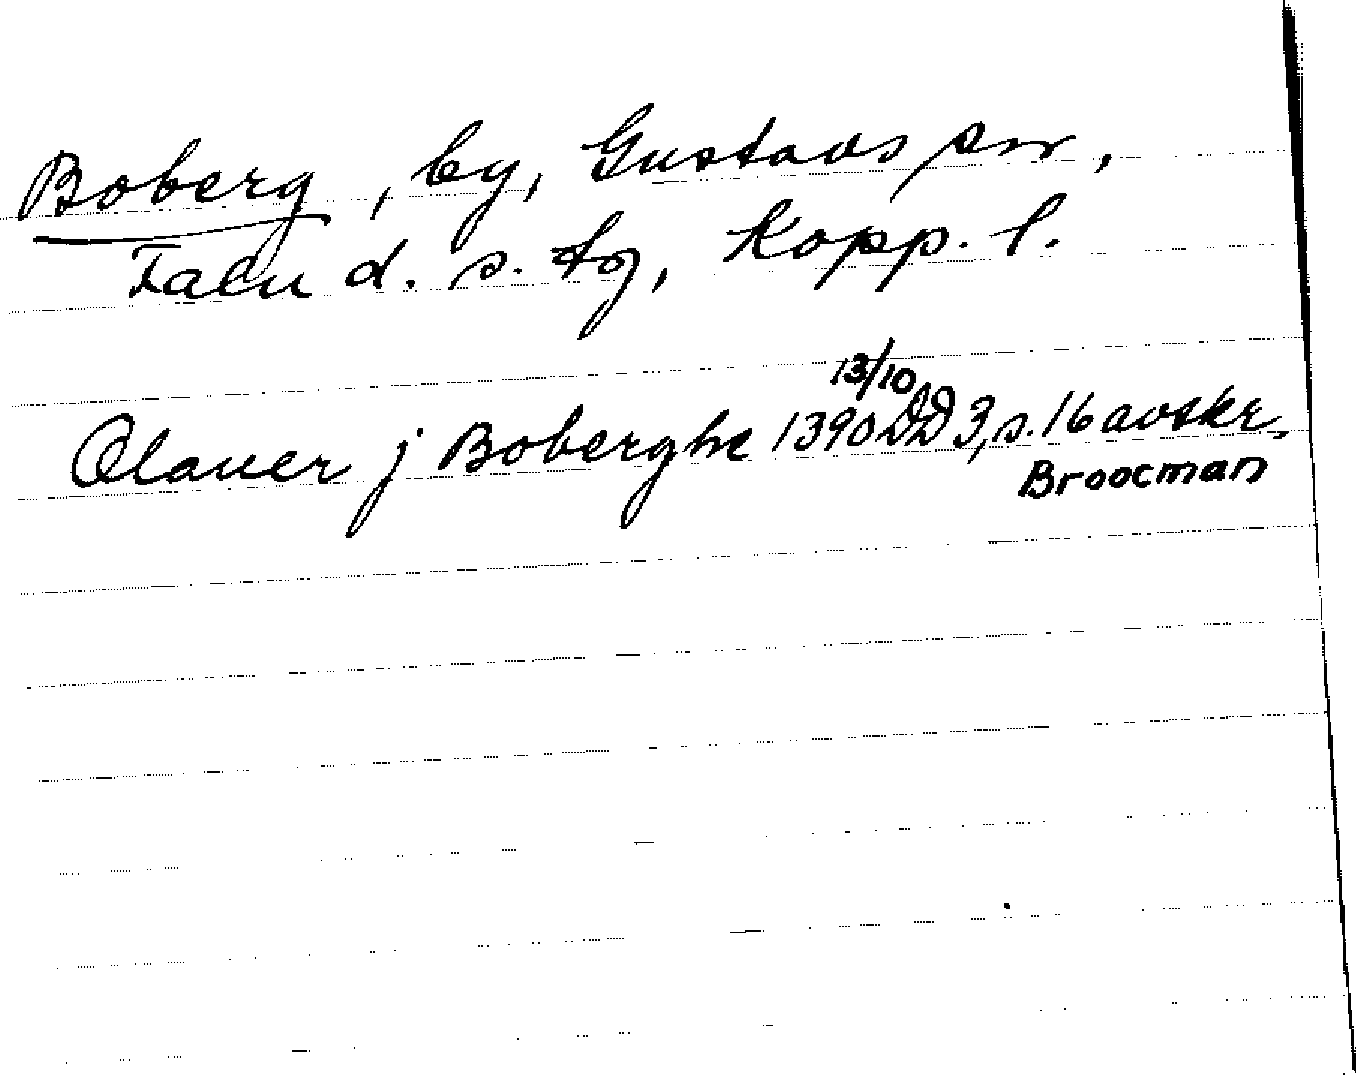 Boberg, by, Gustavs sn,
Falu d. s. tg, Kopp. l.
13/10
Olauer j Boberghe 1390 DD 3, s. 16 avskr.
Broocman